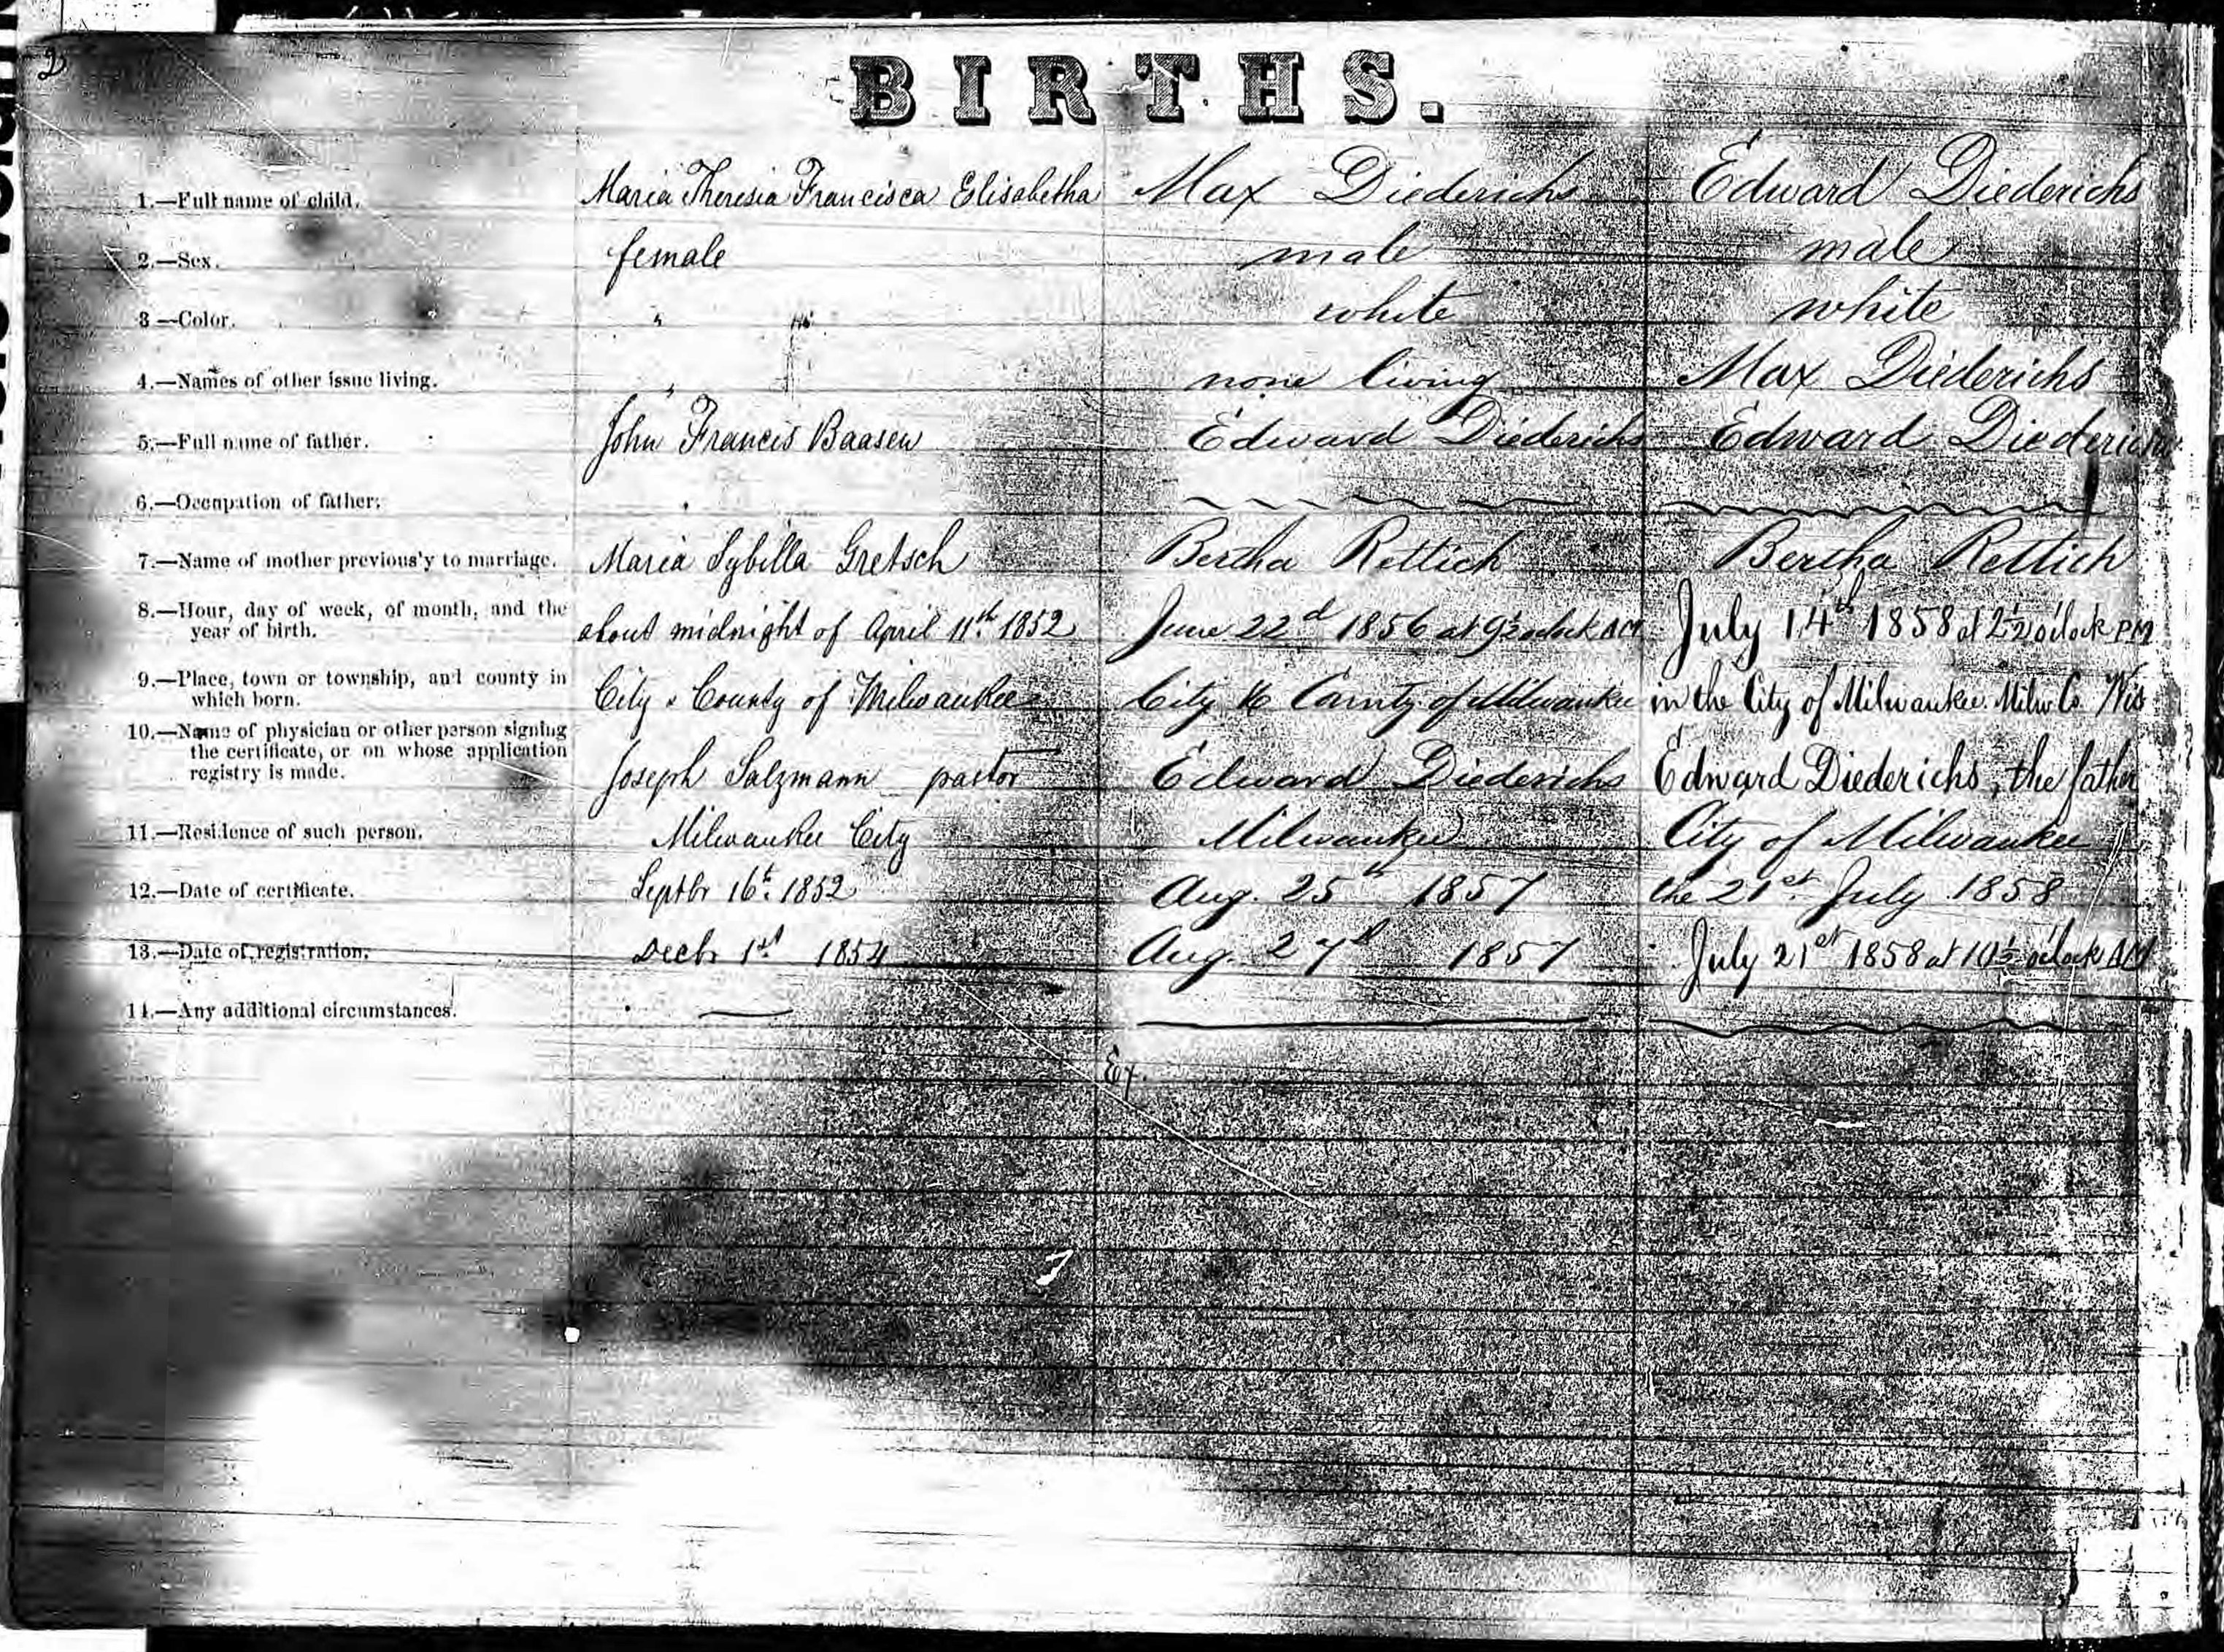 2
BIRTHS.
1.—Full name of child. Maria Theresia Francisca Elisabetha Max Diederichs Edward Diederichs
2.—Sex. female male male
3—Color. " white white
4.—Names of other issue living. " none living Max Diederichs
5.—Full name of father. John Francis Baasen Edward Diederichs Edward Diederichs
6.—Occupation of father.
7.—Name of mother previous'y to marriage. Maria Sybilla Gretsch Bertha Rettich Bertha Rettich
8.—Hour, day of week, of month, and the
year of birth. about midnight of April 11th 1852 June 22d 1856 at 9½ oclock AM July 14th 1858 at 2½ o'clock PM
9.—Place, town or township, and county in
which born. City & County of Milwaukee City & County of Milwaukee in the City of Milwaukee. Milw. Co. Wis
10.—Name of physician or other person signing
the certificate, or on whose application
registry is made. Joseph Salzmann pastor Edward Diederichs Edward Diederichs, the father
11.—Residence of such person. Milwaukee City Milwaukee City of Milwaukee
12.—Date of certificate. Septbr 16t. 1852 Aug. 25th 1857 the 21st July 1858
13.—Date of registration. Decbr 1st 1854 Aug. 27th 1857 July 21st 1858 at 10½ o'clock AM
14.—Any additional circumstances.